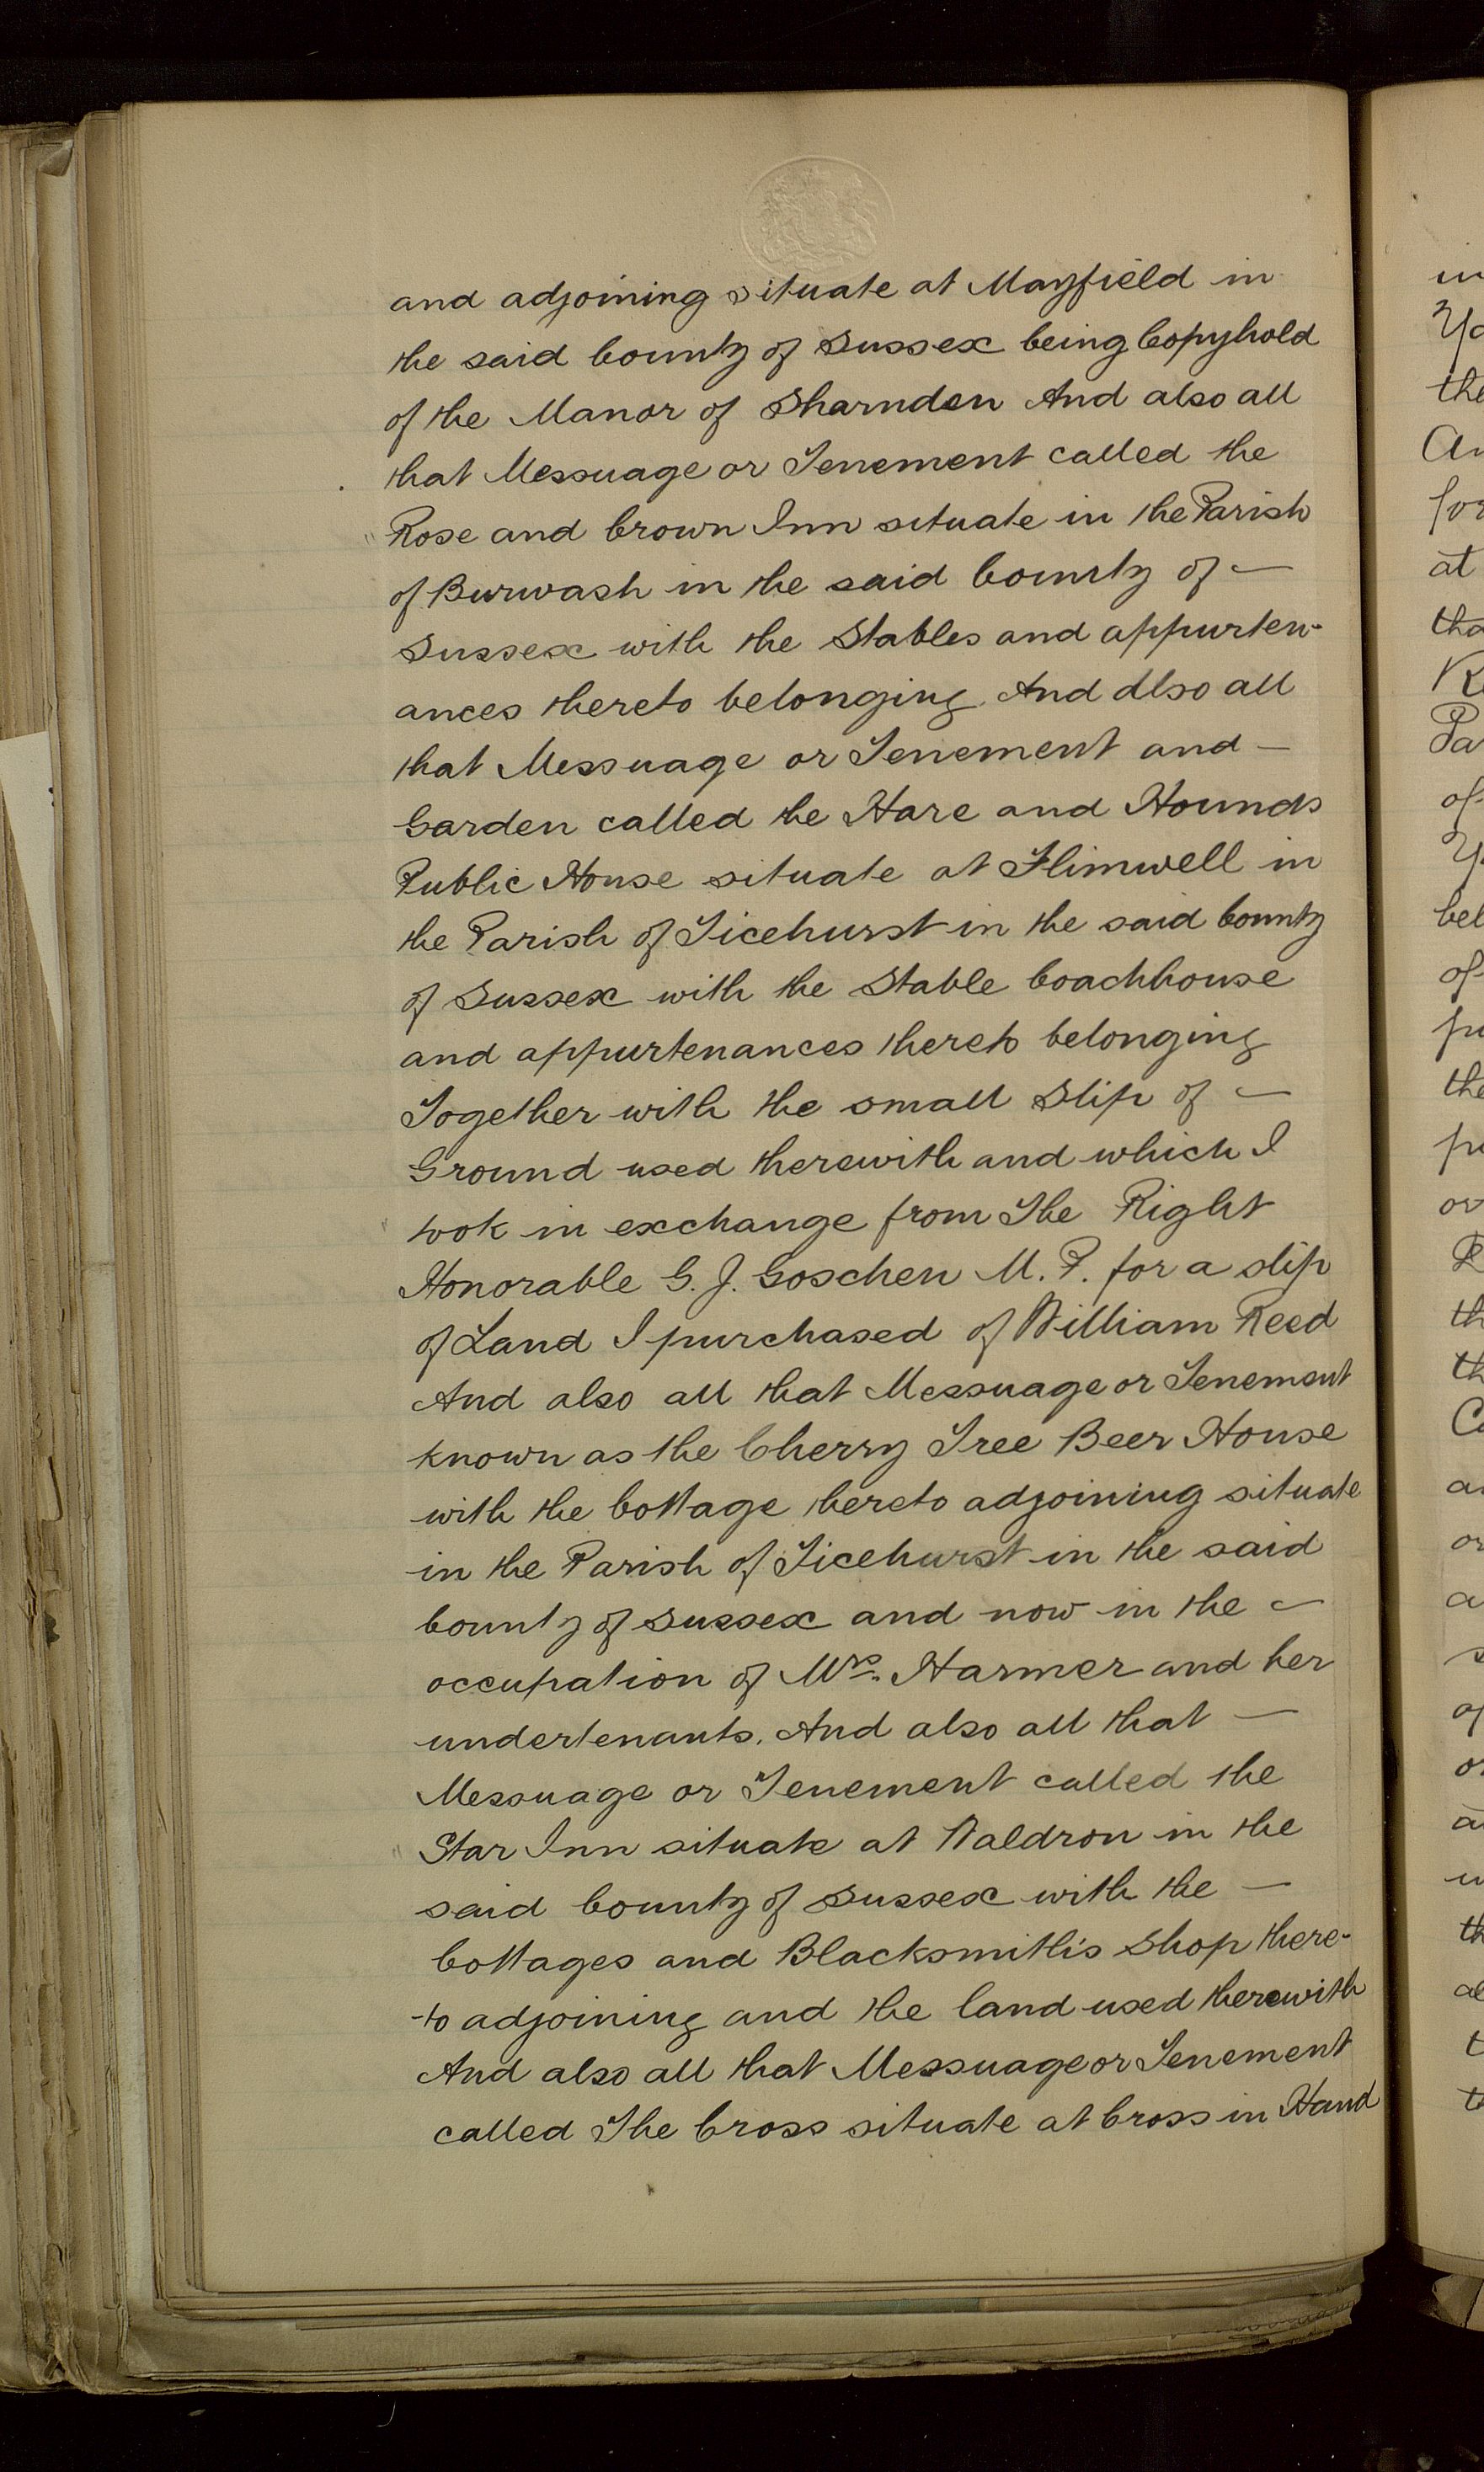 and adjoining situate at Mayfield in
the said County of Sussex being Copyhold
of the Manor of Sharnden And also all
that Messuage or Tenement called the
Rose and Crown Inn situate in the Parish
of Burwash in the said County of —
Sussex with the Stables and appurten-
ances thereto belonging And also all
that Messuage or Tenement and —
Garden called the Hare and Hounds
Public House situate at Flimwell in
the Parish of Ticehurst in the said County
of Sussex with the Stable Coachhouse
and appurtenances thereto belonging
Together with the small Slip of —
Ground used therewith and which I
took in exchange from The Right
Honorable G. J. Goschen M. P. for a slip
of Land I purchased of William Reed
And also all that Messuage or Tenement
known as the Cherry Tree Beer House
with the Cottage thereto adjoining situate
in the Parish of Ticehurst in the said
County of Sussex and now in the —
occupation of Mrs. Harmer and her
undertenants. And also all that —
Messuage or Tenement called the
Star Inn situate at Waldron in the
said County of Sussex with the —
Cottages and Blacksmith's Shop there-
-to adjoining and the land used therewith
And also all that Messuage or Tenement
called The Cross situate at Cross in Hand